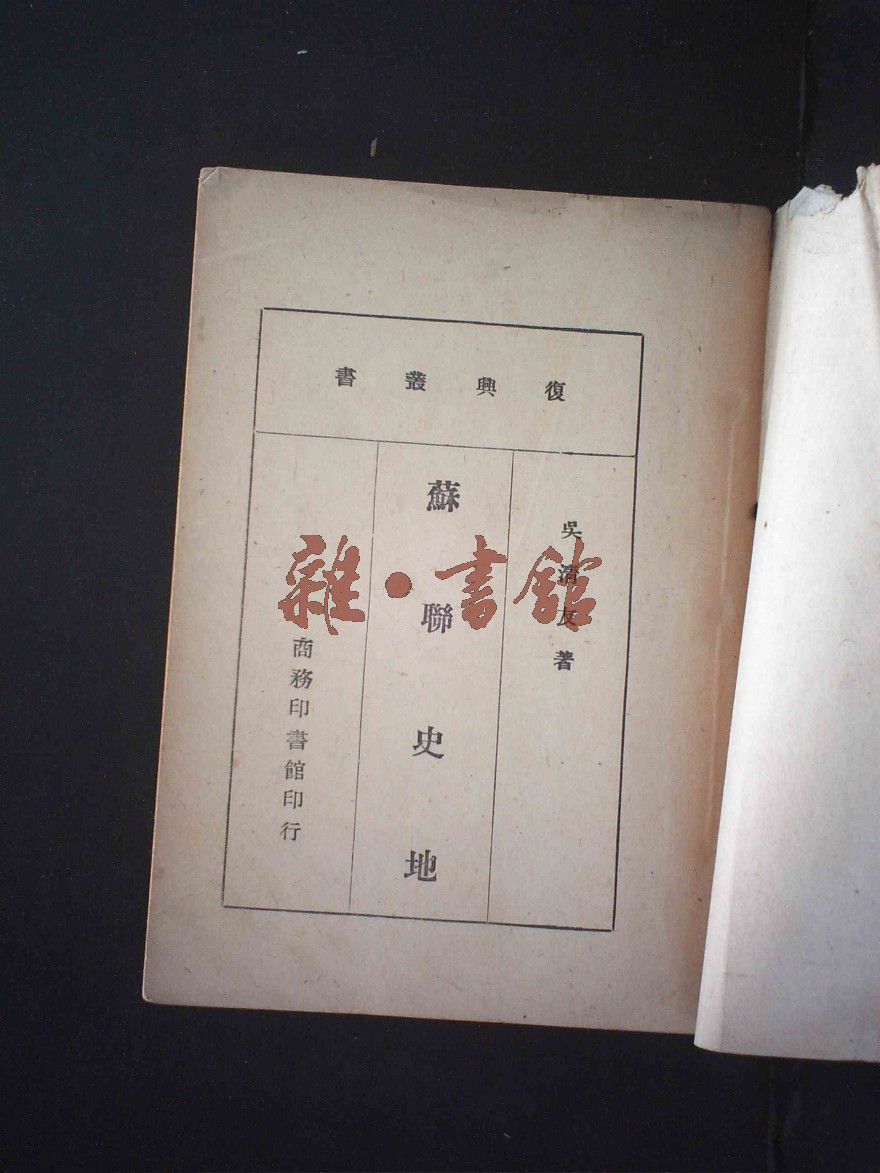 復興叢書
吳清友著
蘇聯史地
商務印書館印行
雜·書館